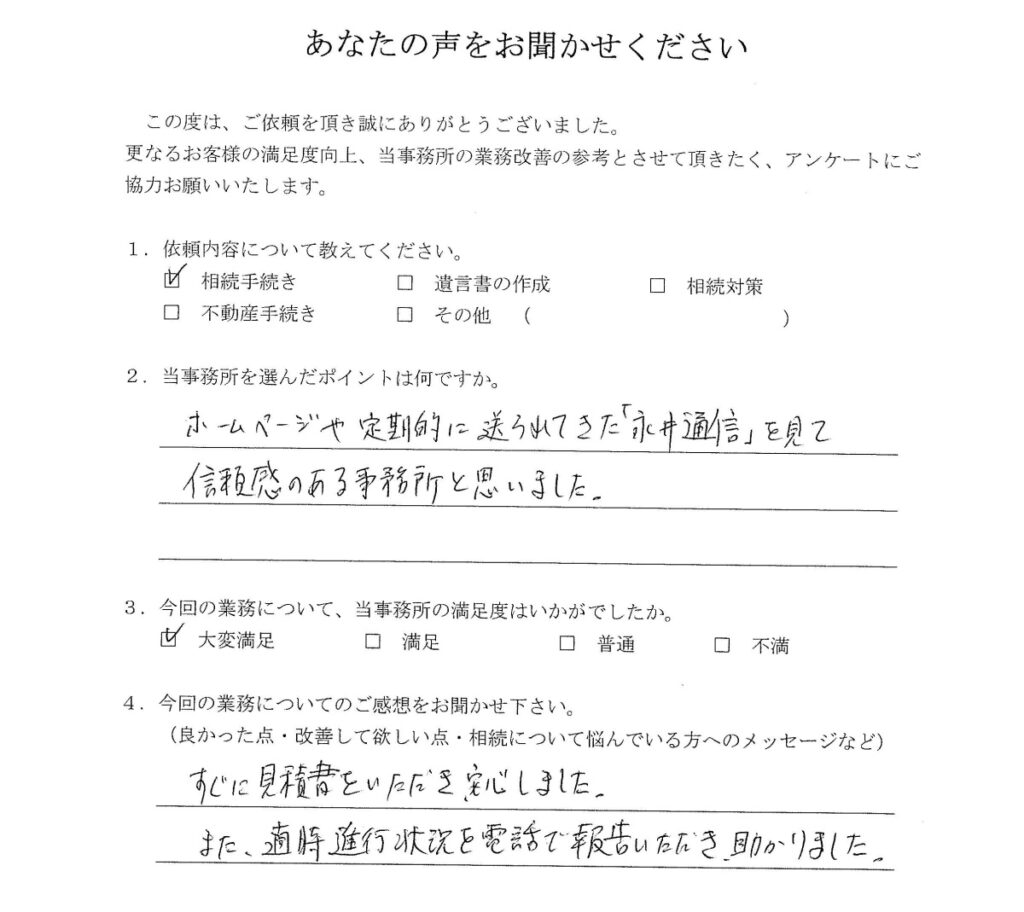 あなたの声をお聞かせください
この度は、ご依頼を頂き誠にありがとうございました。
更なるお客様の満足度向上、当事務所の業務改善の参考とさせて頂きたく、アンケートにご
協力お願いいたします。
１．依頼内容について教えてください。
☑ 相続手続き □ 遺言書の作成 □ 相続対策
□ 不動産手続き □ その他 （ ）
２．当事務所を選んだポイントは何ですか。
ホームページや定期的に送られてきた「永井通信」を見て
信頼感のある事務所と思いました。
３．今回の業務について、当事務所の満足度はいかがでしたか。
☑ 大変満足 □ 満足 □ 普通 □ 不満
４．今回の業務についてのご感想をお聞かせ下さい。
（良かった点・改善して欲しい点・相続について悩んでいる方へのメッセージなど）
すぐに見積書をいただき安心しました。
また、適時進行状況を電話で報告いただき助かりました。